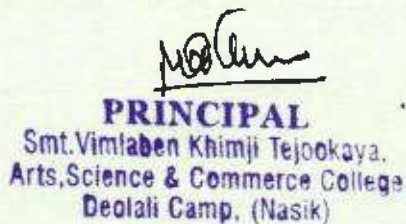 PRINCIPAL
Smt.Vimlaben Khimji Tejookaya.
Arts,Science & Commerce College
Deolali Camp, (Nasik)